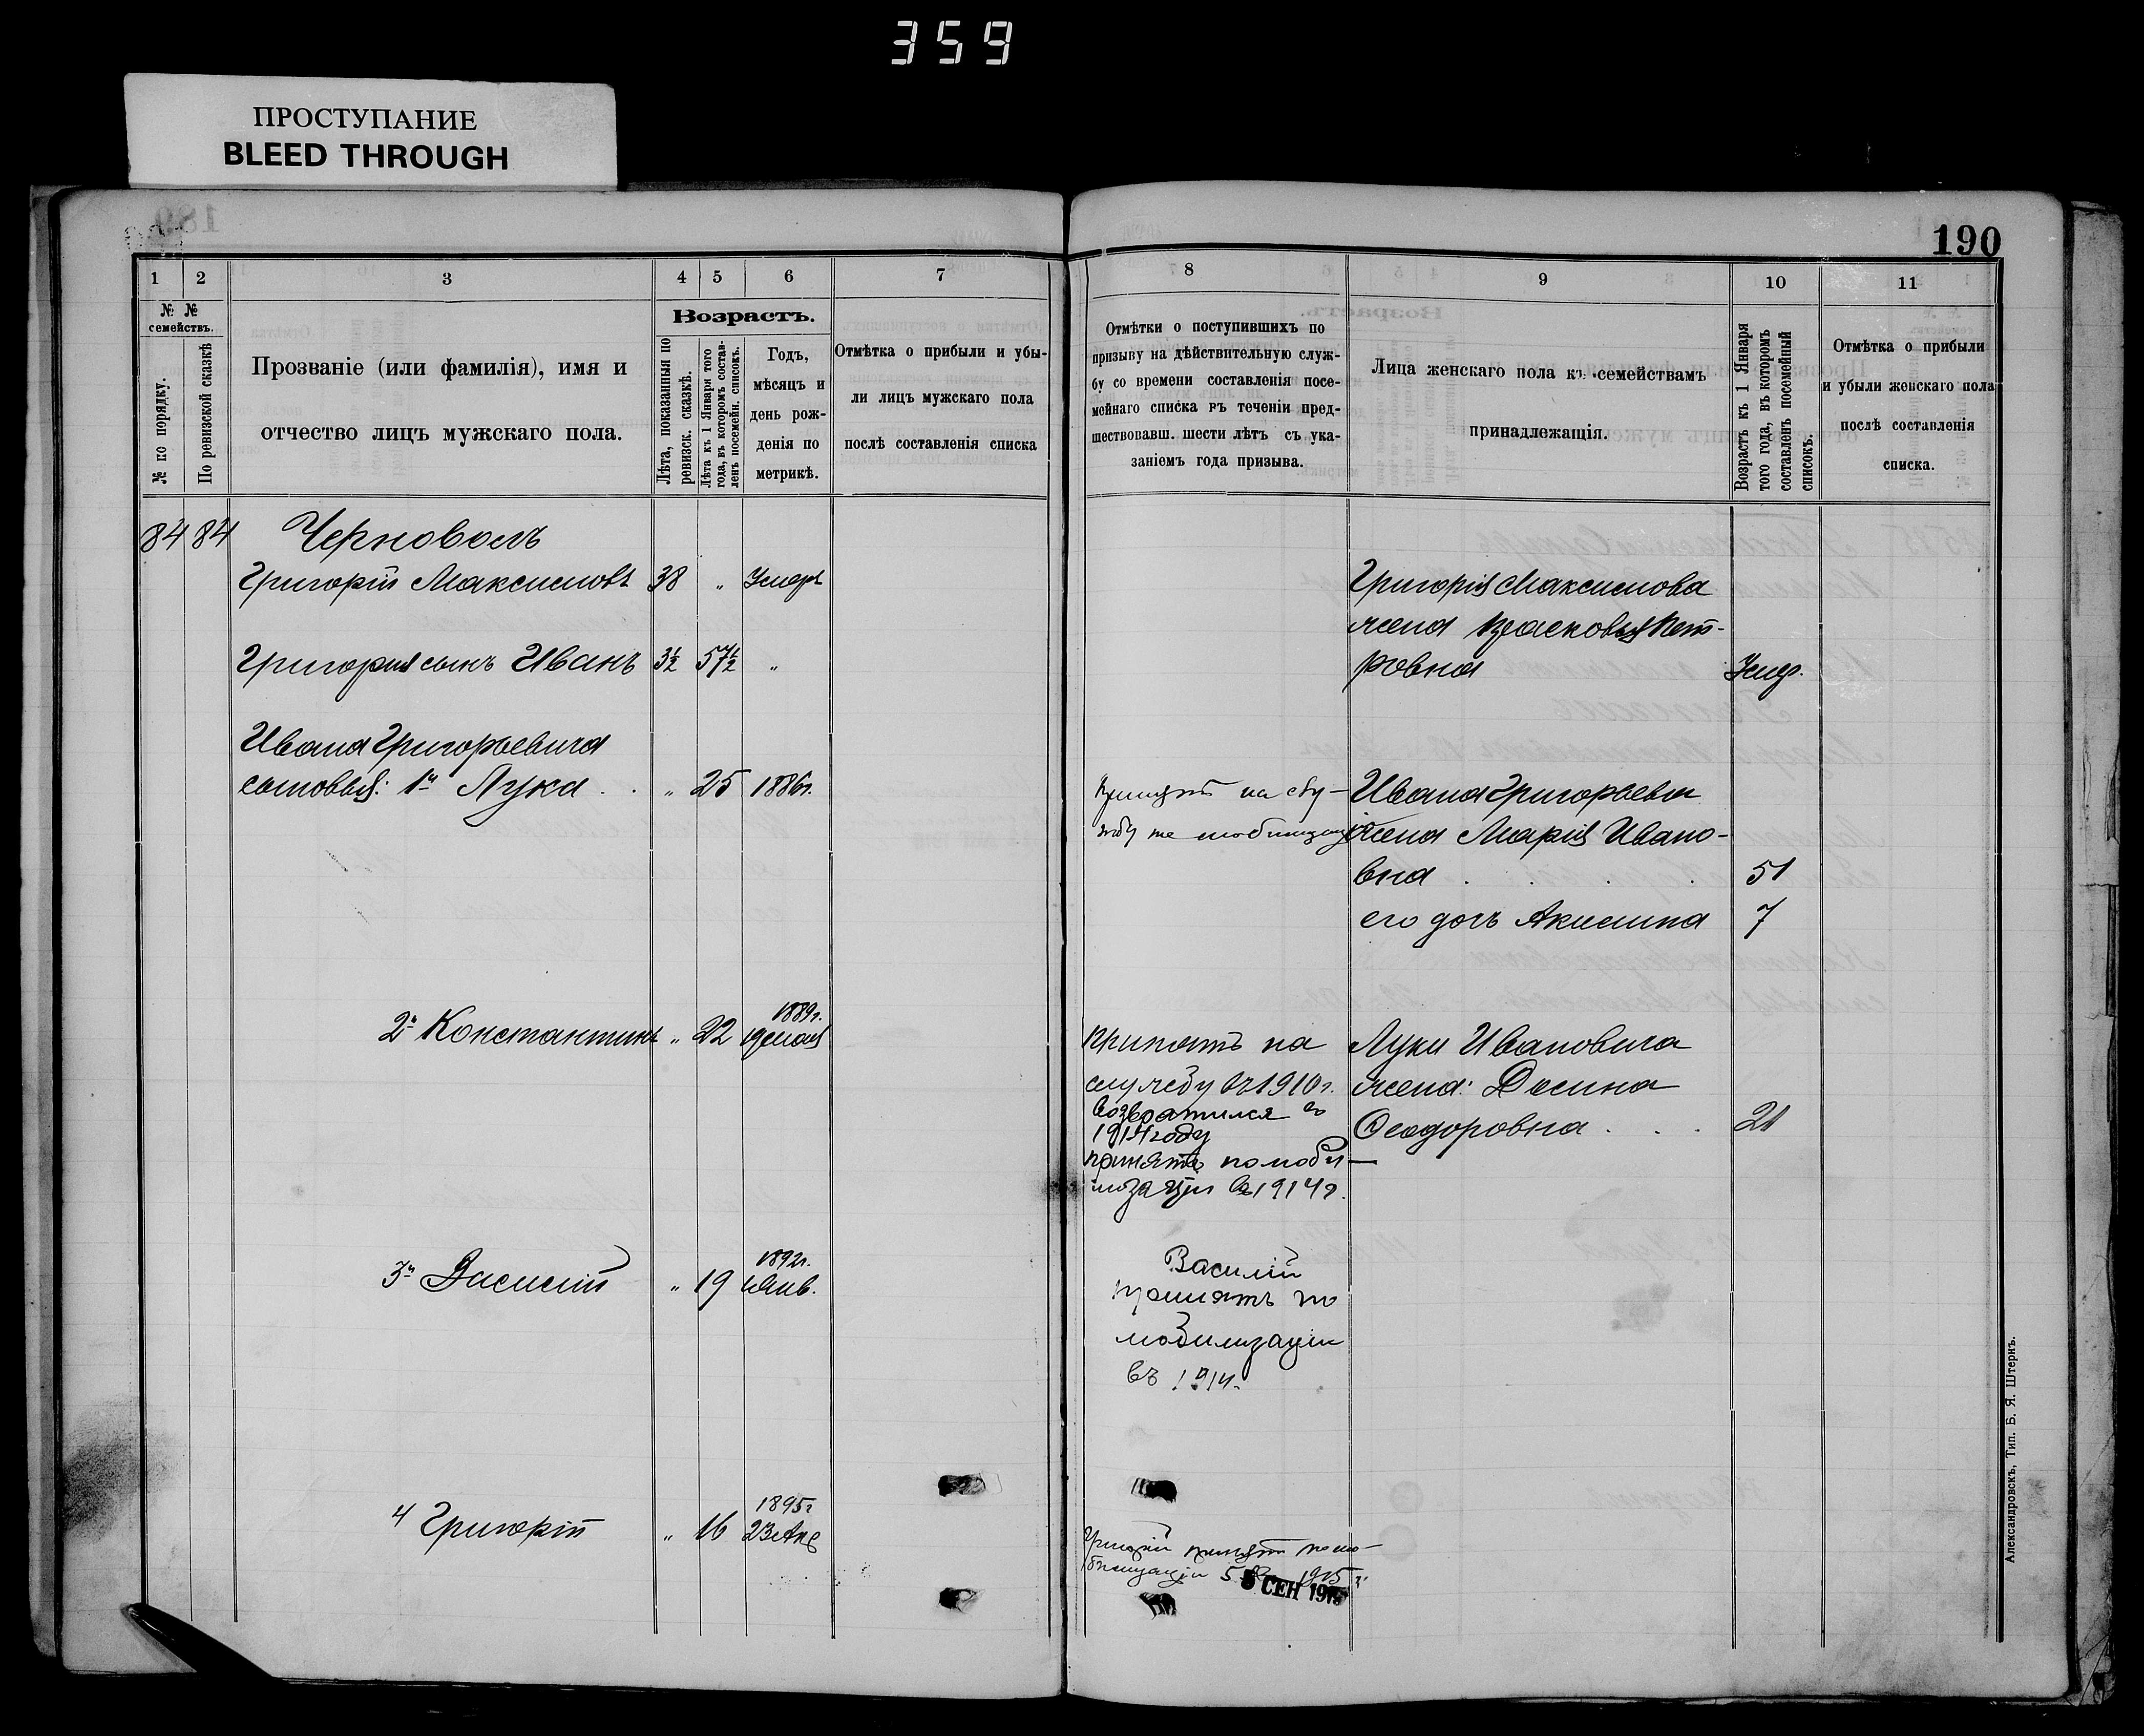 359
ПРОСТУПАНИЕ
BLEED THROUGH
190
1 2 3 4 5 6 7
№ № семействъ.
№ по порядку.
По ревизской сказкѣ
Прозваніе (или фамилія), имя и
отчество лицъ мужскаго пола.
Возрастъ.
Лѣта, показанныя по
ревизск. сказкѣ.
Лѣта къ 1 Января того
года, въ которомъ состав-
ленъ посемейн. списокъ.
Годъ,
мѣсяцъ и
день рож-
денія по
метрикѣ.
Отмѣтка о прибыли и убы-
ли лицъ мужскаго пола
послѣ составленія списка
84 84 Черноволъ
Григорій Максимовъ 38 " Умеръ
Григорія сынъ Иванъ 3½ 57½ "
Ивана Григорьевича
сыновья: 1й Лука . . " 25 1886г.
2й Константинъ " 22 1889г.
19 мая
3й Василій " 19 1892г.
1 Янв.
4 Григорій " 16 1895г
23
8 9 10 11
Отмѣтки о поступившихъ по
призыву на дѣйствительную служ-
бу со времени составленія посе-
мейнаго списка въ теченіи пред-
шествовавш. шести лѣтъ съ ука-
заніемъ года призыва.
Лица женскаго пола къ семействамъ
принадлежащія.
Возрастъ къ 1 Января
того года, въ которомъ
составленъ посемейный
списокъ.
Отмѣтка о прибыли
и убыли женскаго пола
послѣ составленія
списка.
Григорія Максимова
жена Прасковья Пет-
ровна Умер.
Принятъ на слу-
жбу по мобилизаціи
Ивана Григорьева
жена Марія Ивано-
вна . . . . 51
его дочь Акилина 7
Принятъ на
службу въ 1910г.
возвратился въ
1914 году
принятъ по моби-
лизаціи въ 1914г.
Луки Ивановича
жена: Домна
Ѳеодоровна . . . 21
Василій
принятъ по
мобилизаціи
въ 1914.
Григорій принятъ по мо-
билизаціи 5 1915 г.
5 СЕН 1915
Александровскъ, Тип. Б. Я. Штернъ.